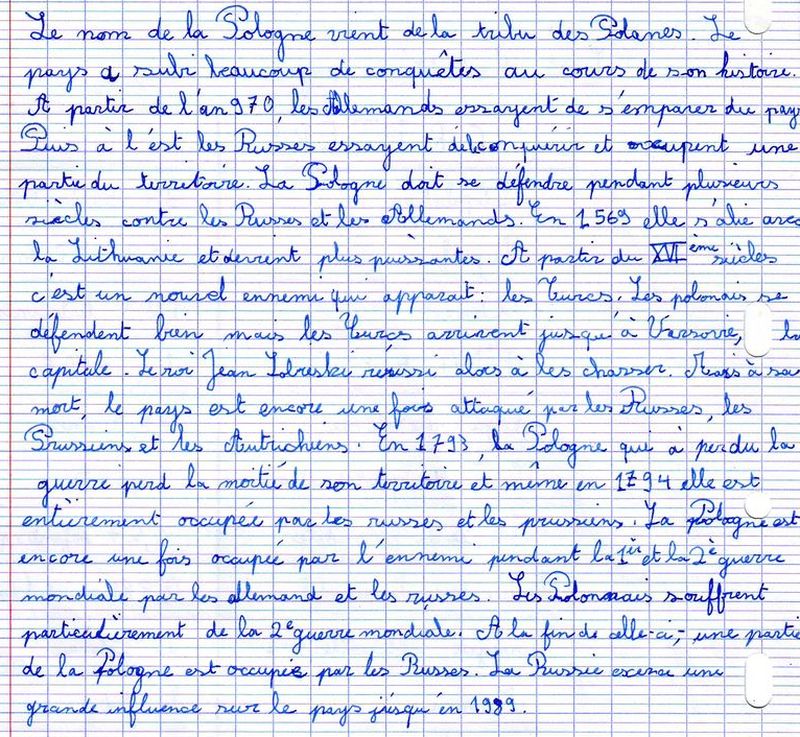 Le nom de la Pologne vient de la tribu des Polanes. Le
pays a subi beaucoup de conquêtes au cours de son histoire.
A partir de l'an 970, les Allemands essayent de s'emparer du pays
Puis à l'est les Russes essayent de conquérir et occupent une
partie du territoire. La Pologne doit se défendre pendant plusieurs
siècles contre les Russes et les Allemands. En 1569 elle s'alie avec
la Lithuanie et devient plus puissantes. A partir du XVIème siècles
c'est un nouvel ennemi qui apparait : les Turcs. Les polonais se
défendent bien mais les Turcs arrivent jusqu'à Varsovie, la
capitale. Le roi Jean Sobreski réussi alors à les chasser. Mais à sa
mort, le pays est encore une fois attaqué par les Russes, les
Prussiens et les Autrichiens. En 1793, la Pologne qui à perdu la
guerre perd la moitié de son territoire et même en 1794 elle est
entièrement occupée par les russes et les prussiens. La Pologne est
encore une fois occupée par l'ennemi pendant la 1èr et la 2è guerre
mondiale par les allemand et les russes. Les Polonnais souffrent
particulièrement de la 2è guerre mondiale. A la fin de celle-ci, une partie
de la Pologne est occupée par les Russes. La Russie exerce une
grande influence sur le pays jusqu'en 1989.